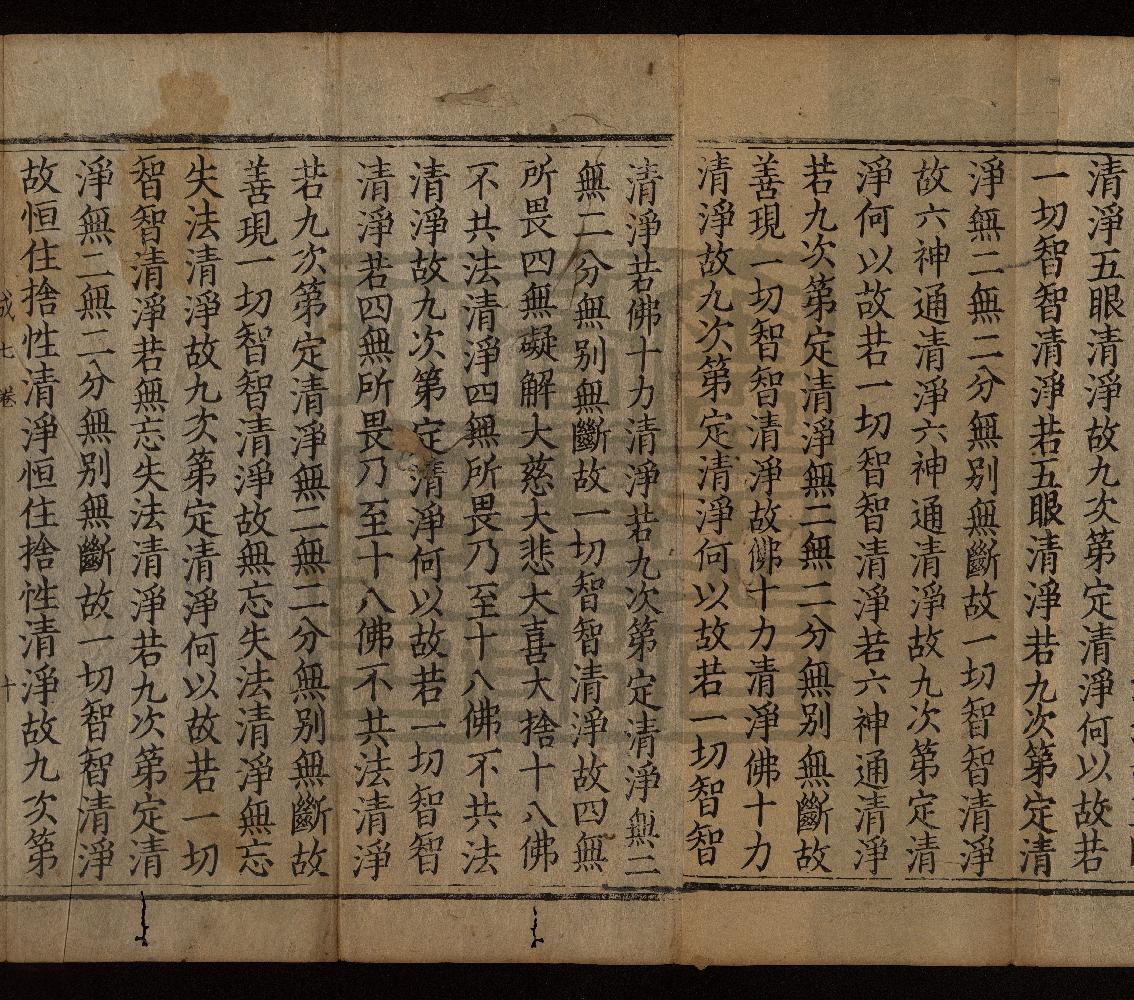 清淨五眼清淨故九次第定清淨何以故若
一切智智清淨若五眼清淨若九次第定清
淨無二無二分無別無斷故一切智智清淨
故六神通清淨六神通清淨故九次第定清
淨何以故若一切智智清淨若六神通清淨
若九次第定清淨無二無二分無別無斷故
善現一切智智清淨故佛十力清淨佛十力
清淨故九次第定清淨何以故若一切智智
清淨若佛十力清淨若九次第定清淨無二
無二分無別無斷故一切智智清淨故四無
所畏四無礙解大慈大悲大喜大捨十八佛
不共法清淨四無所畏乃至十八佛不共法
清淨故九次第定清淨何以故若一切智智
清淨若四無所畏乃至十八佛不共法清淨
若九次第定清淨無二無二分無別無斷故
善現一切智智清淨故無忘失法清淨無忘
失法清淨故九次第定清淨何以故若一切
智智清淨若無忘失法清淨若九次第定清
淨無二無二分無別無斷故一切智智清淨
故恒住捨性清淨恒住捨性清淨故九次第
七 卷 十